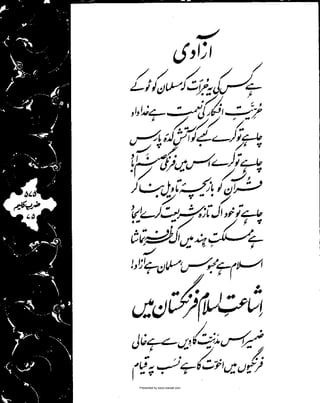 آزادی
ہے کس کی یہ جرأت کہ مسلمان کو ٹوکے
حریت افکار کی نعمت ہے خداداد
چاہے تو کرے کعبے کو آتش کدۂ پارس
چاہے تو کرے اس میں فرنگی صنم آباد
قرآن کو بازیچۂ تاویل بنا کر
چاہے تو خود اک تازہ شریعت کرے ایجاد
ہے مملکت ہند میں اک طرفہ تماشا
اسلام ہے محبوس، مسلمان ہے آزاد!
اشاعت اسلام فرنگستان میں
ضمیر اس مدنیت کا دیں سے ہے خالی
فرنگیوں میں اخوت کا ہے نسب پہ قیام
۵۷۵
ضرب کلیم
۷۵